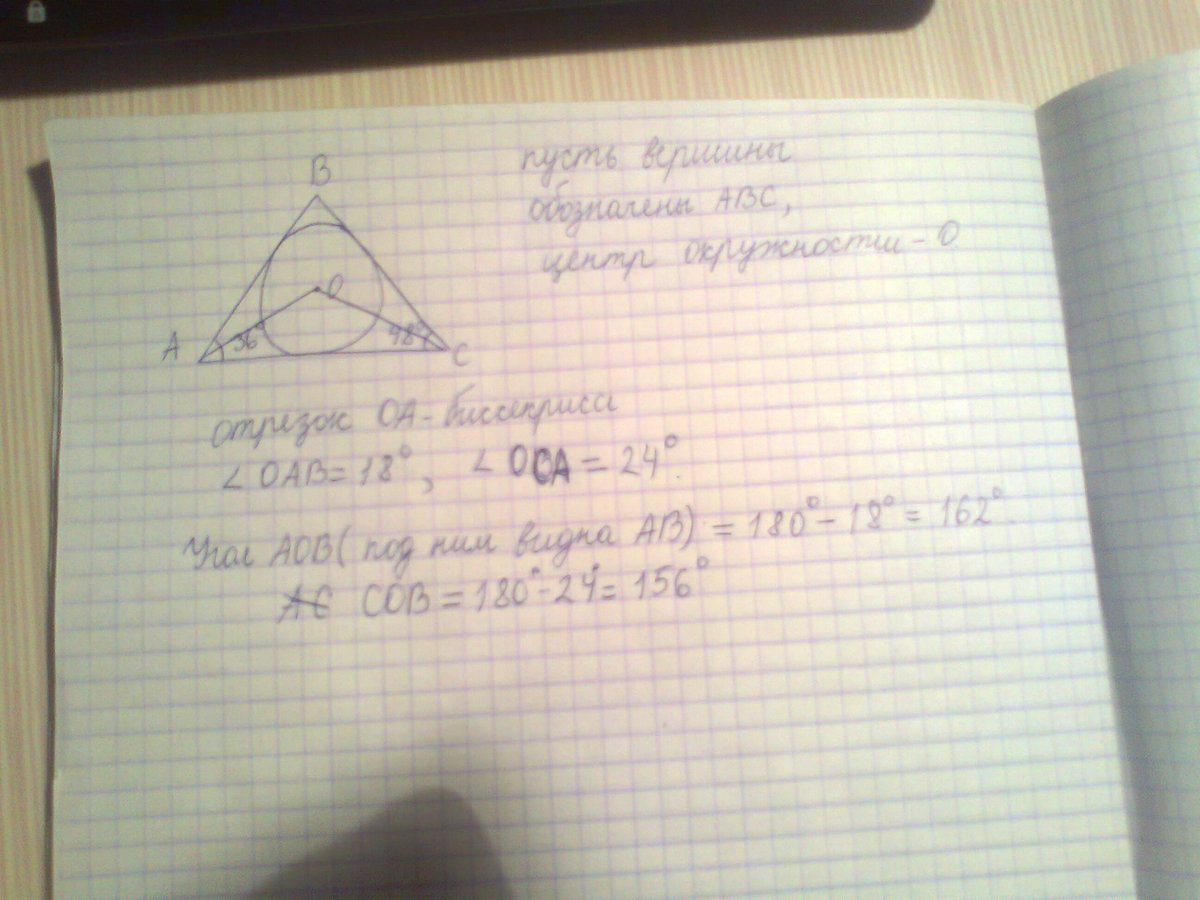 B
O
A
36°
48°
C
пусть вершины
обозначены ABC,
центр окружности - O
отрезок OA - биссектриса
∠ OAB = 18°, ∠ OCA = 24°.
Угол AOB ( под ним видна AB) = 180° - 18° = 162°.
COB = 180° - 24° = 156°